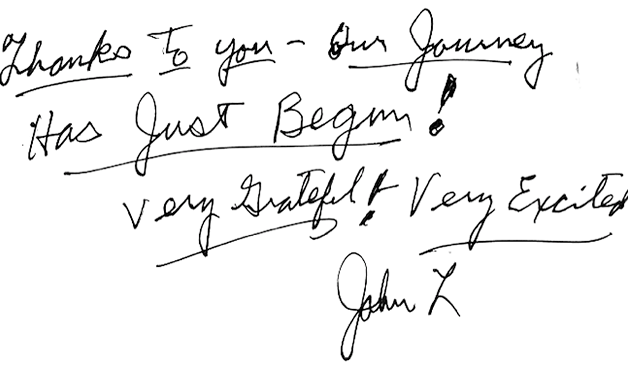 Thanks to you - Our Journey
Has Just Begun!
Very Grateful! + Very Excited
John L